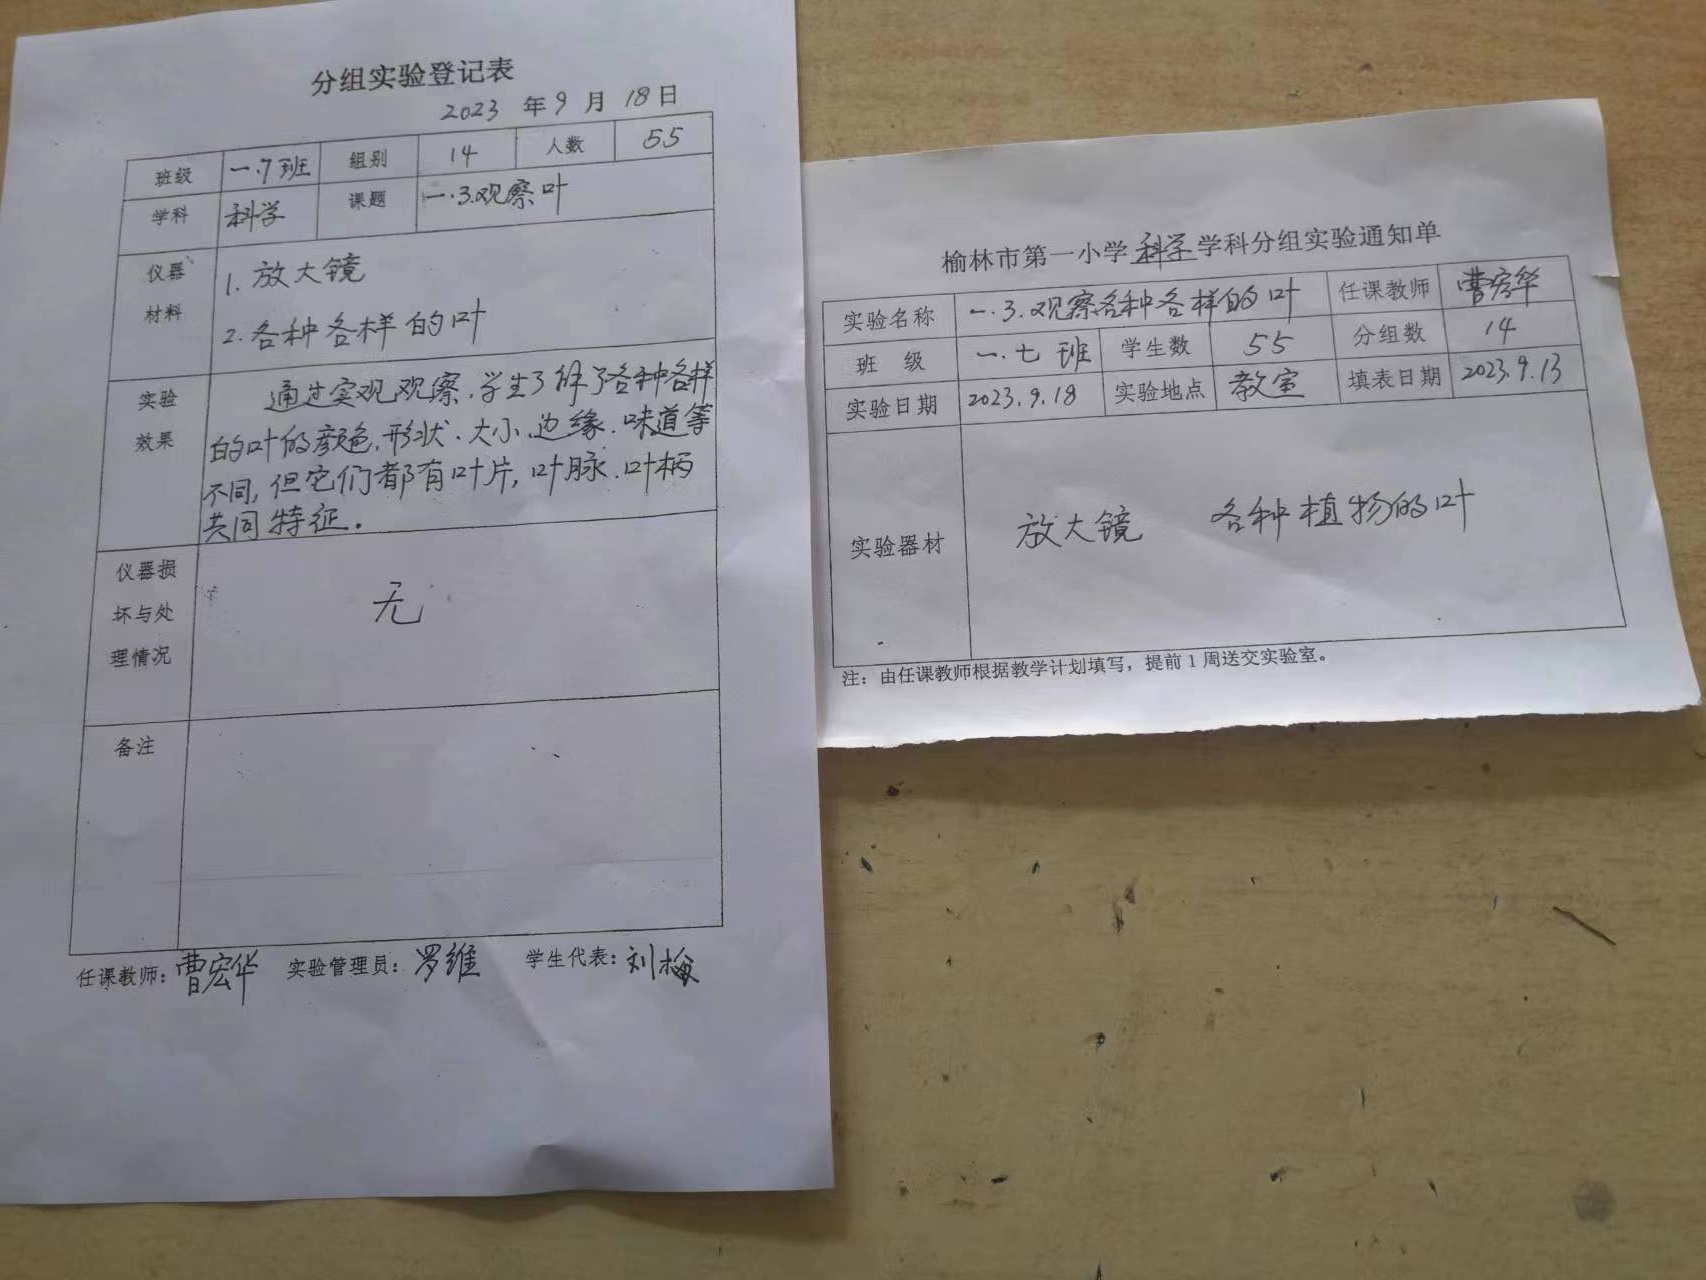 分组实验登记表
2023 年 9 月 18 日
班级 一.7班 组别 14 人数 55
学科 科学 课题 一.3.观察叶
仪器材料
1. 放大镜
2. 各种各样的叶
实验效果
通过实观观察,学生了解了各种各样
的叶的颜色,形状.大小.边缘.味道等
不同,但它们都有叶片,叶脉.叶柄
共同特征。
仪器损
坏与处
理情况
无
备注
任课教师:曹宏华 实验管理员:罗维 学生代表:刘梅
榆林市第一小学科学学科分组实验通知单
实验名称 一.3.观察各种各样的叶 任课教师 曹宏华
班 级 一.七 班 学生数 55 分组数 14
实验日期 2023.9.18 实验地点 教室 填表日期 2023.9.13
实验器材 放大镜 各种植物的叶
注:由任课教师根据教学计划填写,提前1周送交实验室。